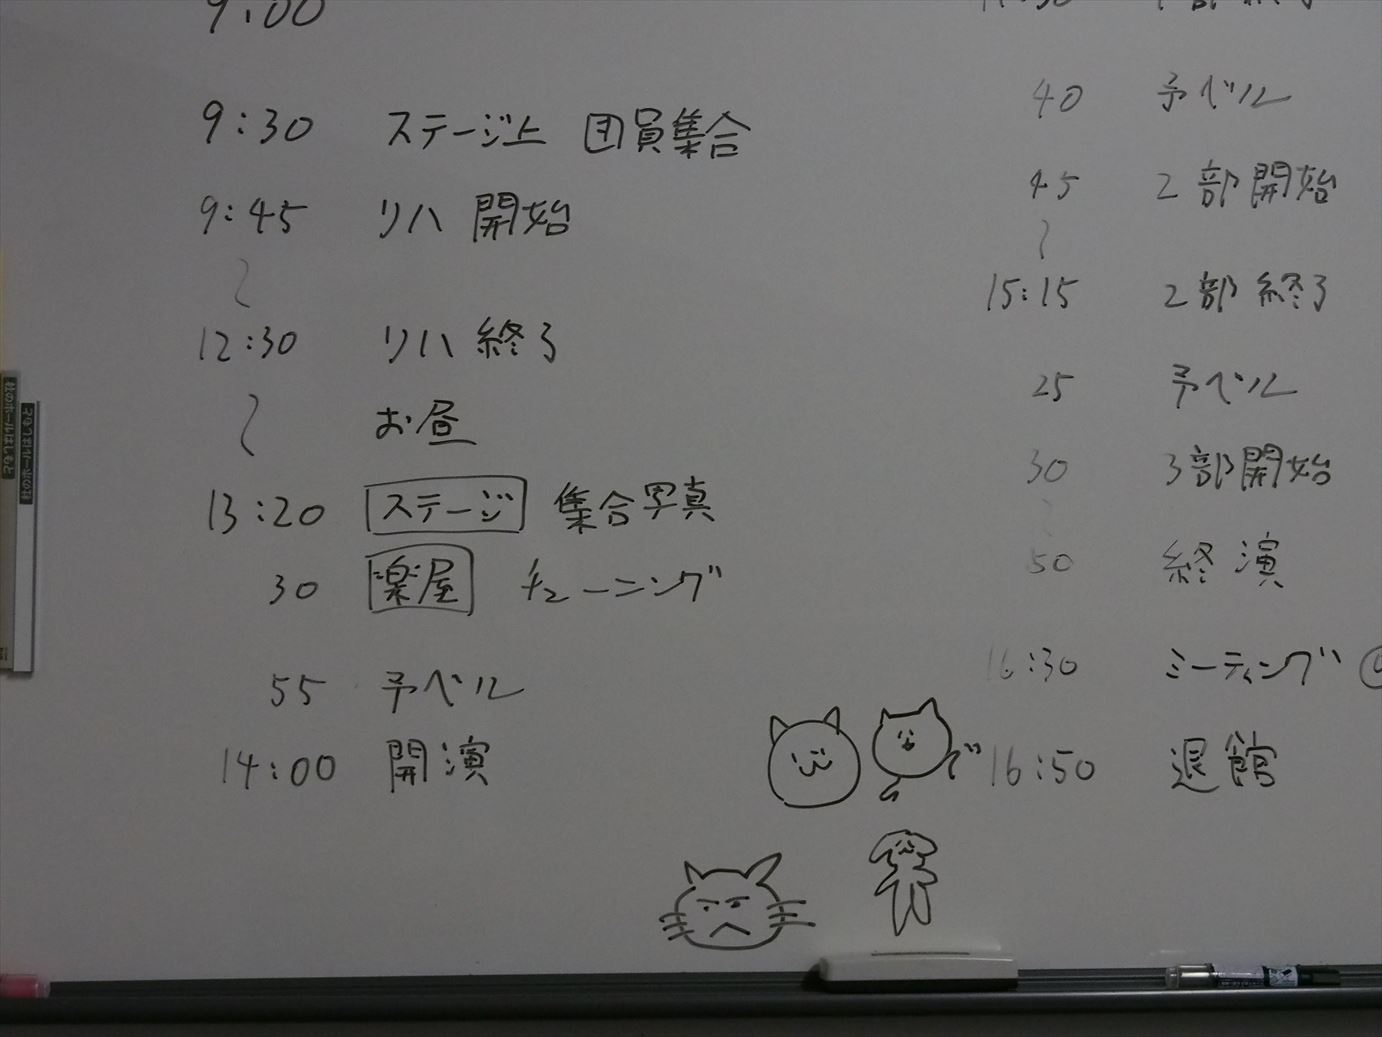 9:00
9:30 ステージ上 団員集合
9:45 リハ 開始
〜
12:30 リハ 終了
〜 お昼
13:20 ステージ 集合写真
30 楽屋 チューニング
55 予ベル
14:00 開演
40 予ベル
45 2部開始
〜
15:15 2部終了
25 予ベル
30 3部開始
〜
50 終演
16:30 ミーティング
16:50 退館
杜のホールはしもと
杜のホールはしもと